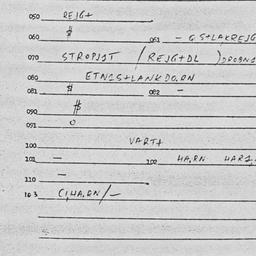 050 REJG+
060 $ 061 - G.S+LAKREJG
070 STROPJIT (REJG+DL )DROBNI
080 ETNIS+LANKDG.RN
081 $ 082 -
090 $
091 0
100 VART+
101 - 102 HA,RN HAR1,
110 -
103 C1,HA,RN/-